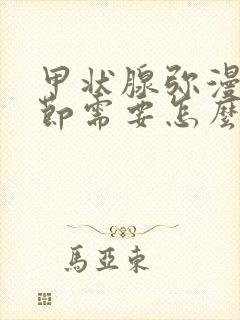 甲状腺弥漫
节需要怎麽
馬亞東